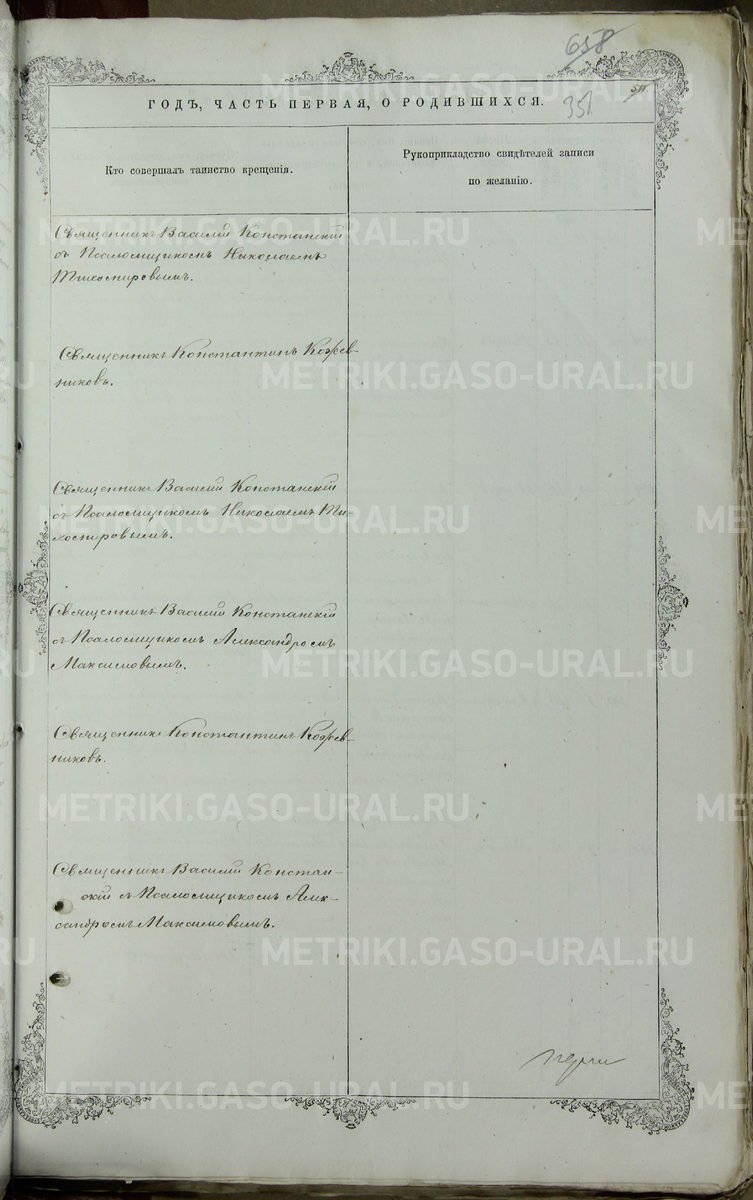 658
351
ГОДЪ, ЧАСТЬ ПЕРВАЯ, О РОДИВШИХСЯ.
Кто совершалъ таинство крещенія.
Рукоприкладство свидѣтелей записи
по желанію.
Священникъ Василій Констанскій
съ Псаломщикомъ Николаемъ
Тихомировымъ.
Священникъ Константинъ Кожев-
никовъ.
Священникъ Василій Констанскій
съ Псаломщикомъ Николаемъ Ти-
хомировымъ.
Священникъ Василій Констанскій
съ Псаломщикомъ Александромъ
Максимовымъ.
Священникъ Константинъ Кожев-
никовъ.
Священникъ Василій Констан-
скій съ Псаломщикомъ Алек-
сандромъ Максимовымъ.
METRIKI.GASO-URAL.RU